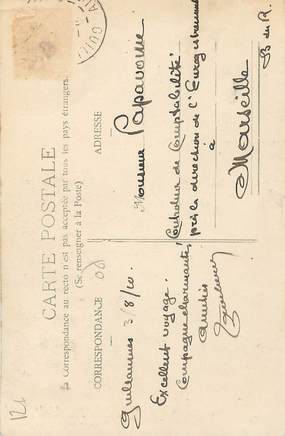 CARTE POSTALE
La Correspondance au recto n'est pas acceptée par tous les pays étrangers.
(Se renseigner à la Poste)
CORRESPONDANCE
ADRESSE
Guillaumes 3/8/10.
Excellent voyage.
Compagne charmante,
Amitiés
Monsieur Papavoine
Contrôleur de Comptabilité
près la direction de l'Enregistrement
à
Marseille
B du R.
121